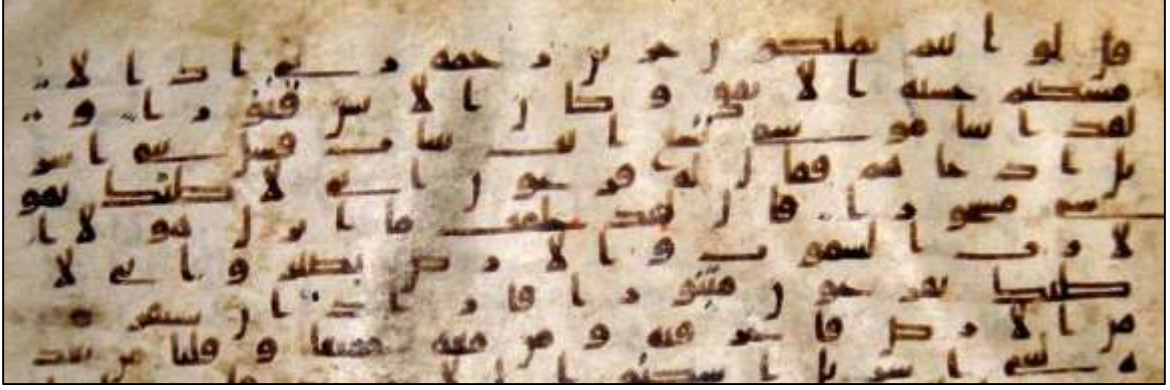 قل لو انتم تملكون خزين رحمه ربى اذا لا
مسكتم خشيه الانفق وكان الانسن قتورا و
لقد اتينا موسى تسع ايت بينت فسل بنى اسر
يل اذ جاهم فقال له فرعون انى لاظنك يمو
سى مسحورا قال لقد علمت ما انزل هولا ا
لا رب السموت والارض بصير وانى لا
ظنك يفرعون مثبورا فاراد ان يستفزهم
من الارض فاغرقنه ومن معه جميعا وقلنا من بعد
ه لبنى اسريل اسكنوا الار